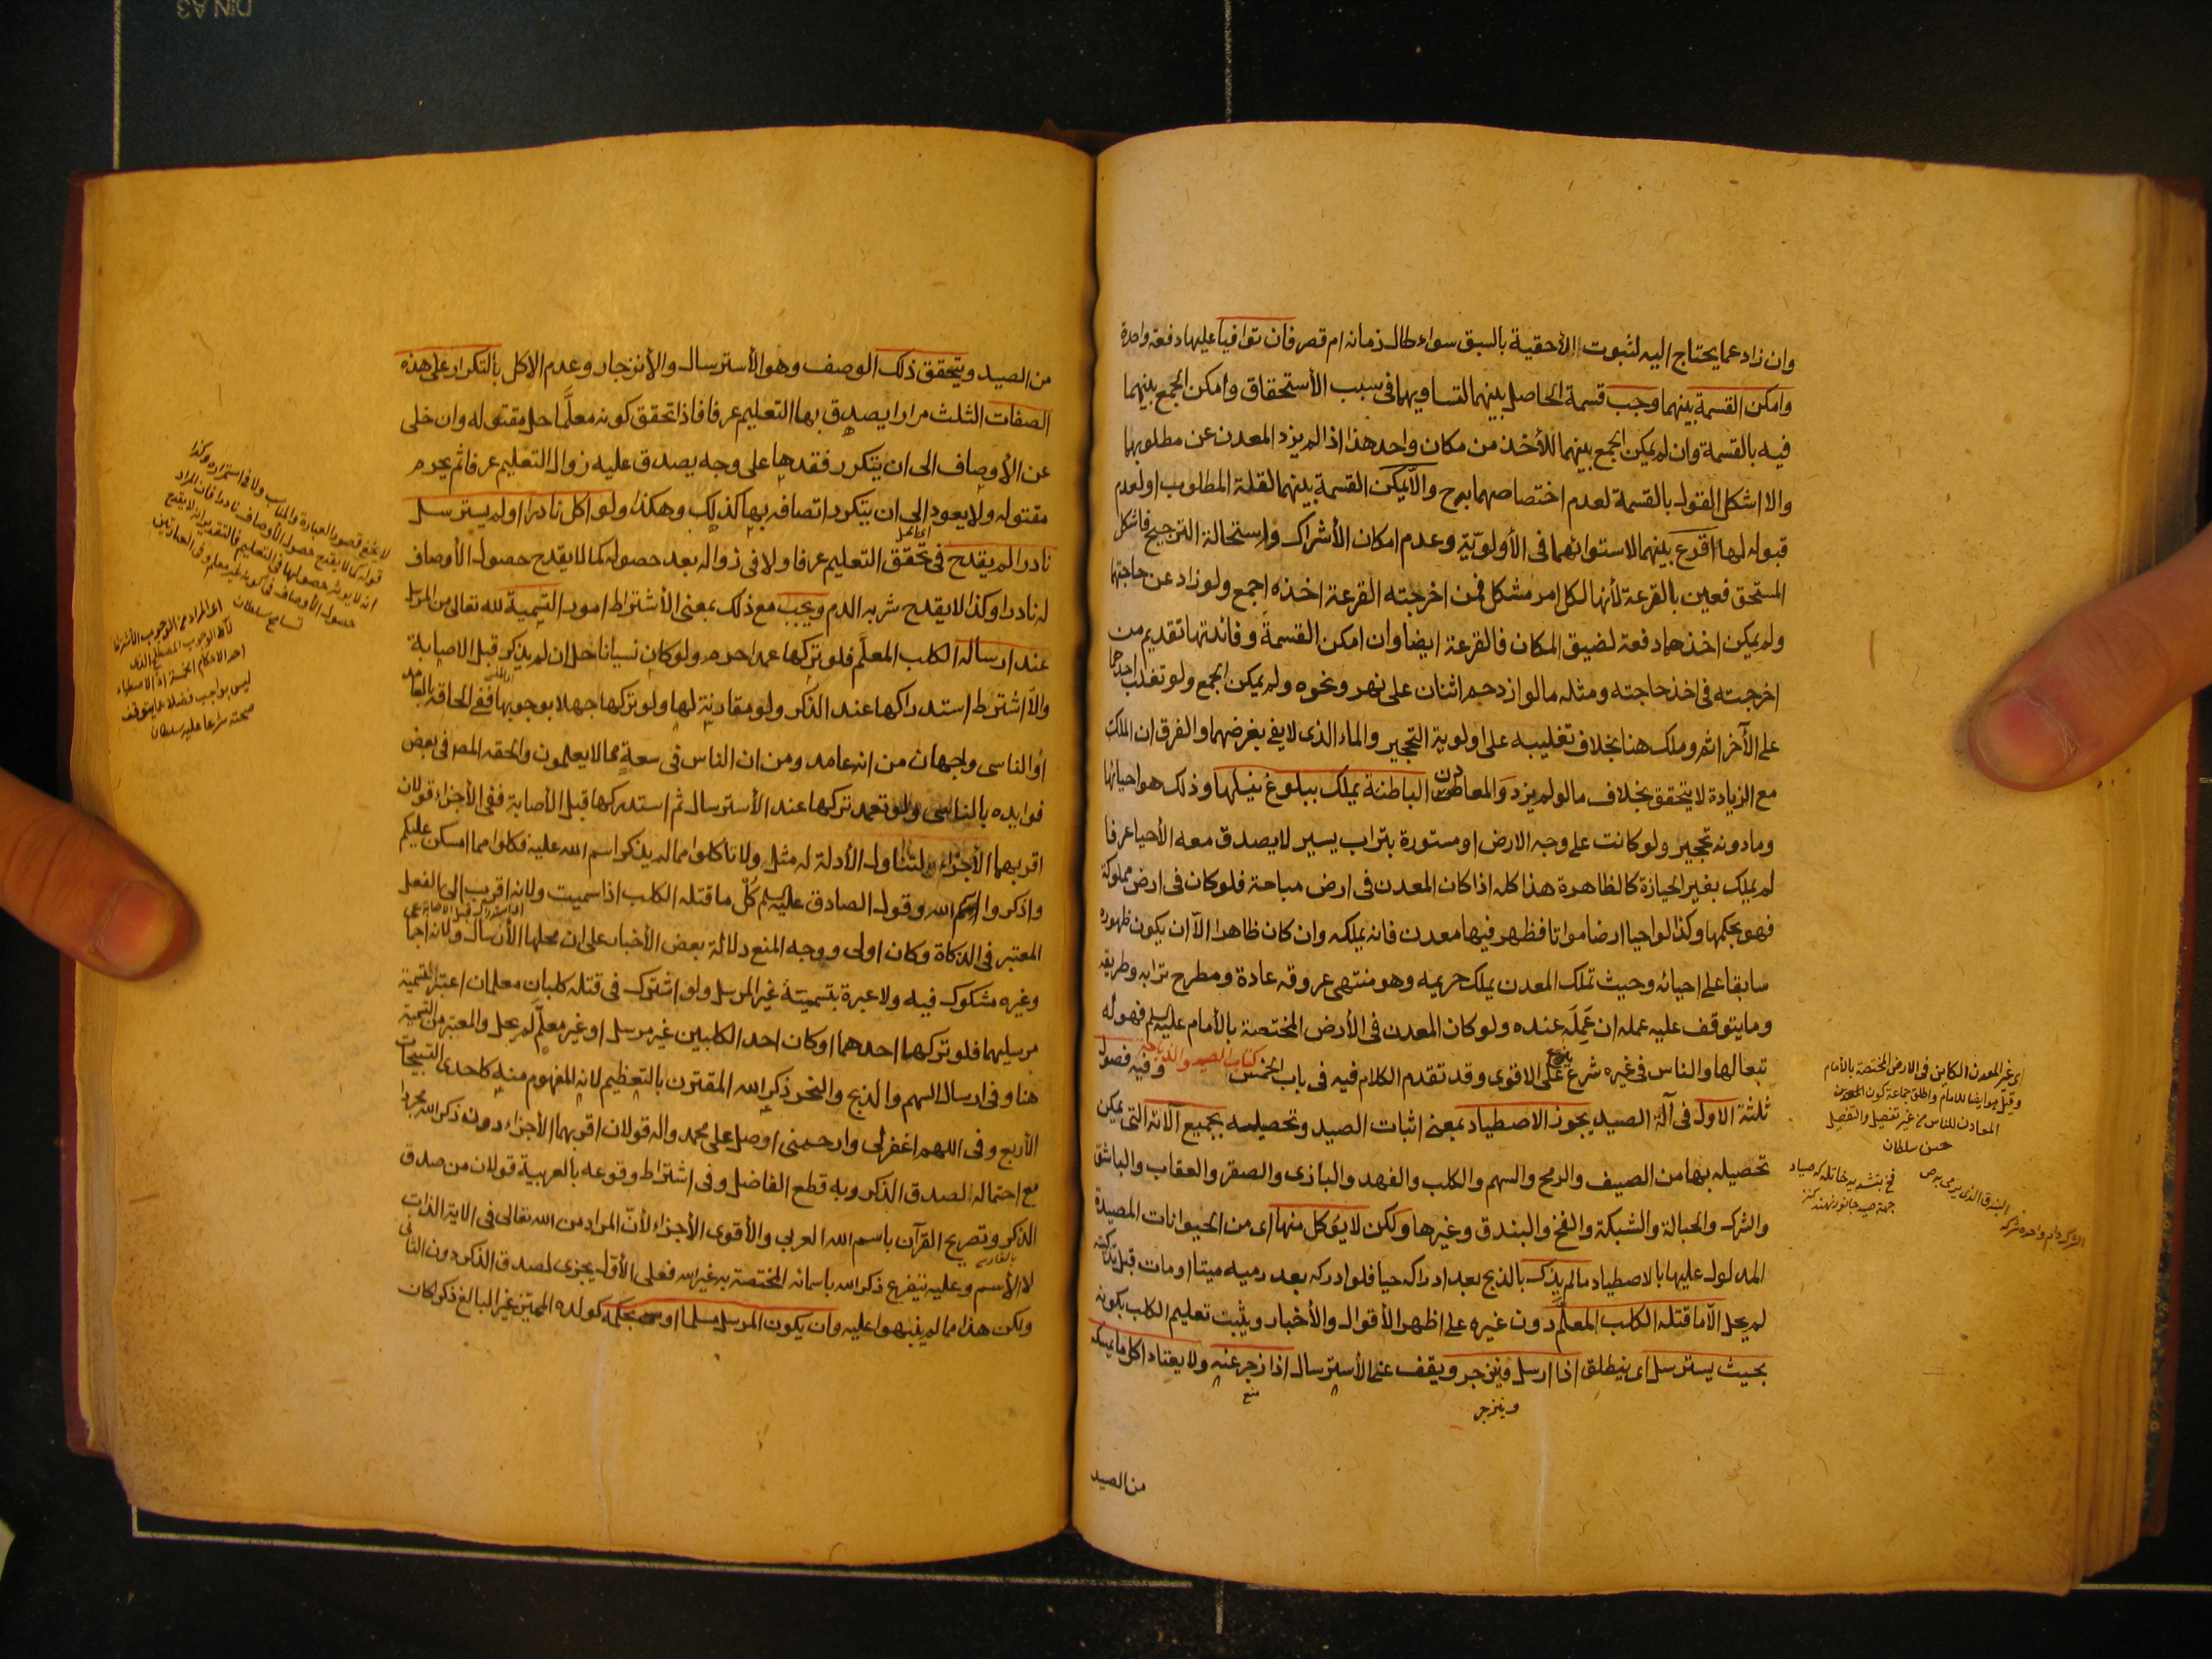 وان زاد عما يحتاج اليه لثبوت الأحقية بالسبق سواء طال زمانه ام قصر فان توافيا عليها دفعة واحدة
وامكن القسمة بينهما وجب قسمة الحاصل بينهما لتساويهما فى سبب الأستحقاق وامكن الجمع بينهما
فيه بالقسمة وان لم يمكن الجمع بينهما للأخذ من مكان واحد هذا اذا لم يزد المعدن عن مطلوبهما
والا اشكل القول بالقسمة لعدم اختصاصهما به ح والا يمكن القسمة بينهما لقلة المطلوب او لعدم
قبوله لها اقرع بينهما لاستوائهما فى الأولوية وعدم امكان الأشراك واستحالة الترجيح فاشكل
المستحق فعين بالقرعة لأنها لكل امر مشكل فمن اخرجته القرعة اخذه اجمع ولو زاد عن حاجتهما
ولم يمكن اخذهما دفعة لضيق المكان فالقرعة ايضا وان امكن القسمة وفائدتها تقديم من
اخرجته فى اخذ حاجته ومثله ما لو ازدحم اثنان على نهر ونحوه ولم يمكن الجمع ولو تغلب احدهما
على الآخر اثم وملك هنا بخلاف تغليبه على اولوية التحجير والماء الذى لا يفي بغرضهما والفرق ان الملك
مع الزيادة لا يتحقق بخلاف ما لو لم يزد والمعادن الباطنة يملك ببلوغ نيلها وذلك هو احياؤها
وما دونه تحجير ولو كانت على وجه الارض او مستورة بتراب يسير لا يصدق معه الأحيا عرفا
لم يملك بغير الحيازة كالظاهرة هذا كله اذا كان المعدن فى ارض مباحة فلو كان فى ارض مملوكة
فهو بحكمها وكذا لو احيا ارضا مواتا فظهر فيها معدن فانه يملكه وان كان ظاهرا الا ان يكون ظهوره
سابقا على احيائه وحيث تملك المعدن يملك حريمه وهو منتهى عروقه عادة ومطرح ترابه وطريقه
وما يتوقف عليه عمله ان عمله عنده ولو كان المعدن فى الأرض المختصة بالأمام عليه السلم فهو له
تبعا لها والناس فى غيره شرع على الاقوى وقد تقدم الكلام فيه فى باب الخمس كتاب الصيد والذباحة وفيه فصول
ثلثة الاول فى آلة الصيد يجوز الاصطياد بمعنى اثبات الصيد وتحصيله بجميع آلاته التى يمكن
تحصيله بها من الصيف والرمح والسهم والكلب والفهد والبازى والصقر والعقاب والباشق
والشرك والحبالة والشبكة والفخ والبندق وغيرها ولكن لا يؤكل منها اى من الحيوانات المصيدة
المدلول عليها بالاصطياد ما لم يذك بالذبح بعد ادراكه حيا فلو ادركه بعد رميه ميتا او مات قبل تذكيته
لم يحل الا ما قتله الكلب المعلم دون غيره على اظهر الأقوال والأخبار ويثبت تعليم الكلب بكونه
بحيث يسترسل اى ينطلق اذا ارسل وينزجر ويقف عند الأسترسال اذا زجر عنه ولا يعتاد اكل ما يمسكه
منع
وينزجر
من الصيد
اى غير المعدن الكاين فى الارض المختصة بالأمام
وقيل هو ايضا للامام واطلق جماعة كون
المعادن للناس من غير تفصيل والتفصيل
حسن سلطان
من الصيد ويتحقق ذلك الوصف وهو الأسترسال والأنزجار وعدم الاكل بالتكرار على هذه
الصفات الثلث مرارا يصدق بها التعليم عرفا فاذا تحقق كونه معلما حل مقتوله وان خلى
عن الأوصاف الى ان يتكرر فقدها على وجه يصدق عليه زوال التعليم عرفا ثم يحرم
مقتوله ولا يعود الى ان يتكرر اتصافه بها كذلك وهكذا ولو اكل نادرا او لم يسترسل
نادرا لم يقدح فى تحقق التعليم عرفا ولا فى زواله بعد حصوله كما لا يقدح حصول الأوصاف
له نادرا وكذا لا يقدح شربه الدم ويجب مع ذلك بمعنى الأشتراط امور التسمية لله تعالى من المرسل
عند ارساله الكلب المعلم فلو تركها عمدا حرم ولو كان نسيانا حل ان لم يذكر قبل الاصابة
والا اشترط استدراكها عند الذكر ولو مقارنة لها ولو تركها جهلا بوجوبها ففى الحاقه بالعامد
او الناسى وجهان من انه عامد ومن ان الناس فى سعة مما لا يعلمون والحقه المص فى بعض
فوايده بالناسى ولو تعمد تركها عند الأسترسال ثم استدركها قبل الأصابة ففى الأجزاء قولان
اقربهما الأجزاء لتناول الأدلة له مثل ولا تأكلوا مما لم يذكر اسم الله عليه فكلوا مما امسكن عليكم
واذكروا اسم الله وقول الصادق عليه السلم كل ما قتله الكلب اذا سميت ولانه اقرب الى الفعل
المعتبر فى الذكاة وكان اولى ووجه المنع دلالة بعض الأخبار على ان محلها الأرسال ولانه اجما
وغيره مشكوك فيه ولا عبرة بتسمية غير المرسل ولو اشترك فى قتله كلبان معلمان اعتبر التسمية
مرسليهما فلو تركها احدهما او كان احد الكلبين غير مرسل او غير معلم لم يحل والمعتبر من التسمية
هنا وفى ارسال السهم والذبح والنحر ذكر الله المقترن بالتعظيم لانه المفهوم منه كاحدى التسبيحات
الأربع وفى اللهم اغفر لى وارحمنى او صل على محمد واله قولان اقربهما الأجزاء دون ذكر الله مجردا
مع احتماله لصدق الذكر وبه قطع الفاضل وفى اشتراط وقوعه بالعربية قولان من صدق
الذكر وتصريح القرآن باسم الله العربي والأقوى الأجزاء لأن المراد من الله تعالى فى الآية الذات
لا الأسم وعليه يتفرع ذكر الله باسمائه المختصة به غير الله فعلى الأول يجزى لصدق الذكر دون الثانى
ولكن هذا مما لم ينبهوا عليه وان يكون المرسل مسلما او بحكمه كولده المميز غير البالغ ذكرا كان
لا يخفى قصور العبارة والمناسب ولا فى استمراره وكذا
قوله كما لا يقدح حصول الأوصاف نادرا فان المراد
انه لا يؤثر حصولها فى التعليم فالتقدير انه لا يقدح
حصول الأوصاف فى كونه غير معلم وفى العبارتين
تسامح سلطان